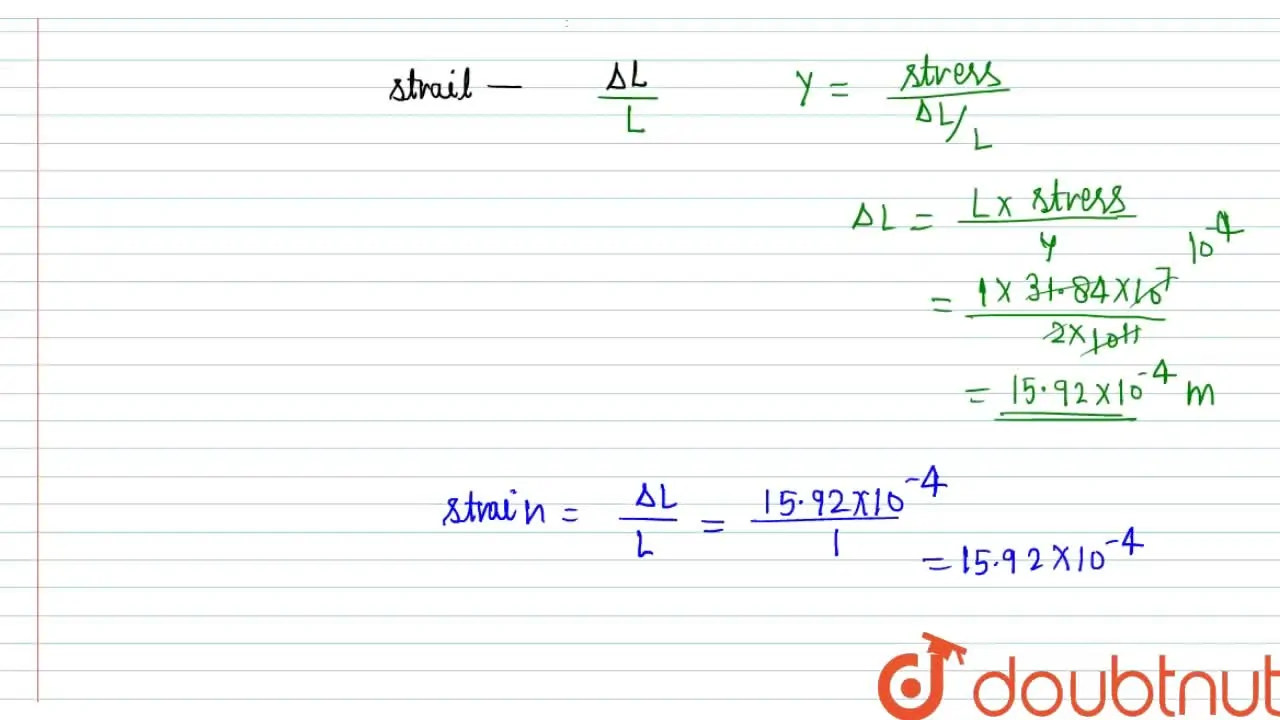 strail — ΔL/L Y = stress/ΔL/L
ΔL = L x stress/Y
= 1 x 31.84 x 10^7/2 x 10^11 10^-4
= 15.92 x 10^-4 m
strain = ΔL/L = 15.92 x 10^-4/1
= 15.92 x 10^-4
doubtnut